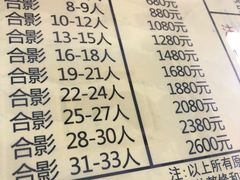 680元
合影 8-9人 880元
合影 10-12人 1080元
合影 13-15人 1280元
合影 16-18人 1480元
合影 19-21人 1680元
合影 22-24人 1880元
合影 25-27人 2080元
合影 28-30人 2380元
合影 31-33人 2600元
注:以上所有原